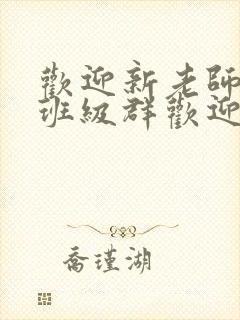 歡迎新老師
班級群歡迎
喬瑾湖